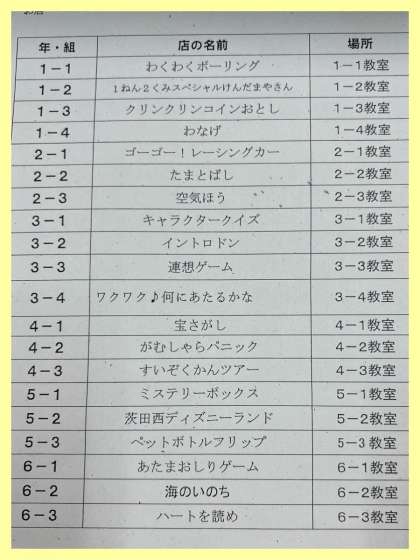 年・組 店の名前 場所
1－1 わくわくボーリング 1－1教室
1－2 1ねん2くみスペシャルけんだまやさん 1－2教室
1－3 クリンクリンコインおとし 1－3教室
1－4 わなげ 1－4教室
2－1 ゴーゴー！レーシングカー 2－1教室
2－2 たまとばし 2－2教室
2－3 空気ほう 2－3教室
3－1 キャラクタークイズ 3－1教室
3－2 イントロドン 3－2教室
3－3 連想ゲーム 3－3教室
3－4 ワクワク♪何にあたるかな 3－4教室
4－1 宝さがし 4－1教室
4－2 がむしゃらパニック 4－2教室
4－3 すいぞくかんツアー 4－3教室
5－1 ミステリーボックス 5－1教室
5－2 茨田西ディズニーランド 5－2教室
5－3 ペットボトルフリップ 5－3教室
6－1 あたまおしりゲーム 6－1教室
6－2 海のいのち 6－2教室
6－3 ハートを読め 6－3教室